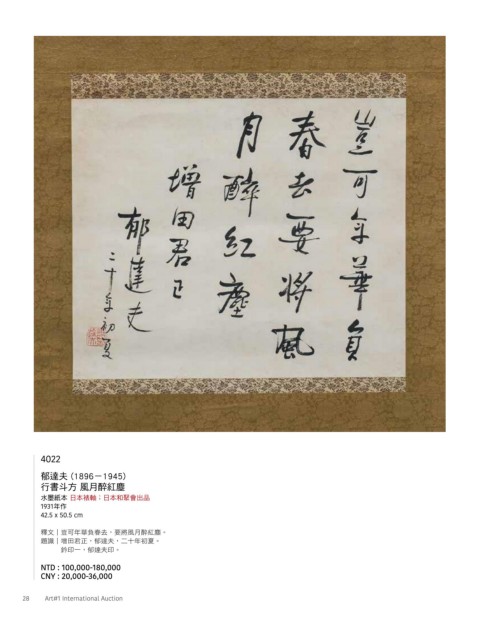 豈可年華負
春去要將風
月醉紅塵
增田君正
郁達夫
二十年初夏
4022
郁達夫 (1896－1945)
行書斗方 風月醉紅塵
水墨紙本 日本裱軸；日本和聚會出品
1931年作
42.5 x 50.5 cm
釋文｜豈可年華負春去，要將風月醉紅塵。
題識｜增田君正，郁達夫，二十年初夏。
鈐印一，郁達夫印。
NTD : 100,000-180,000
CNY : 20,000-36,000
28 Art#1 International Auction